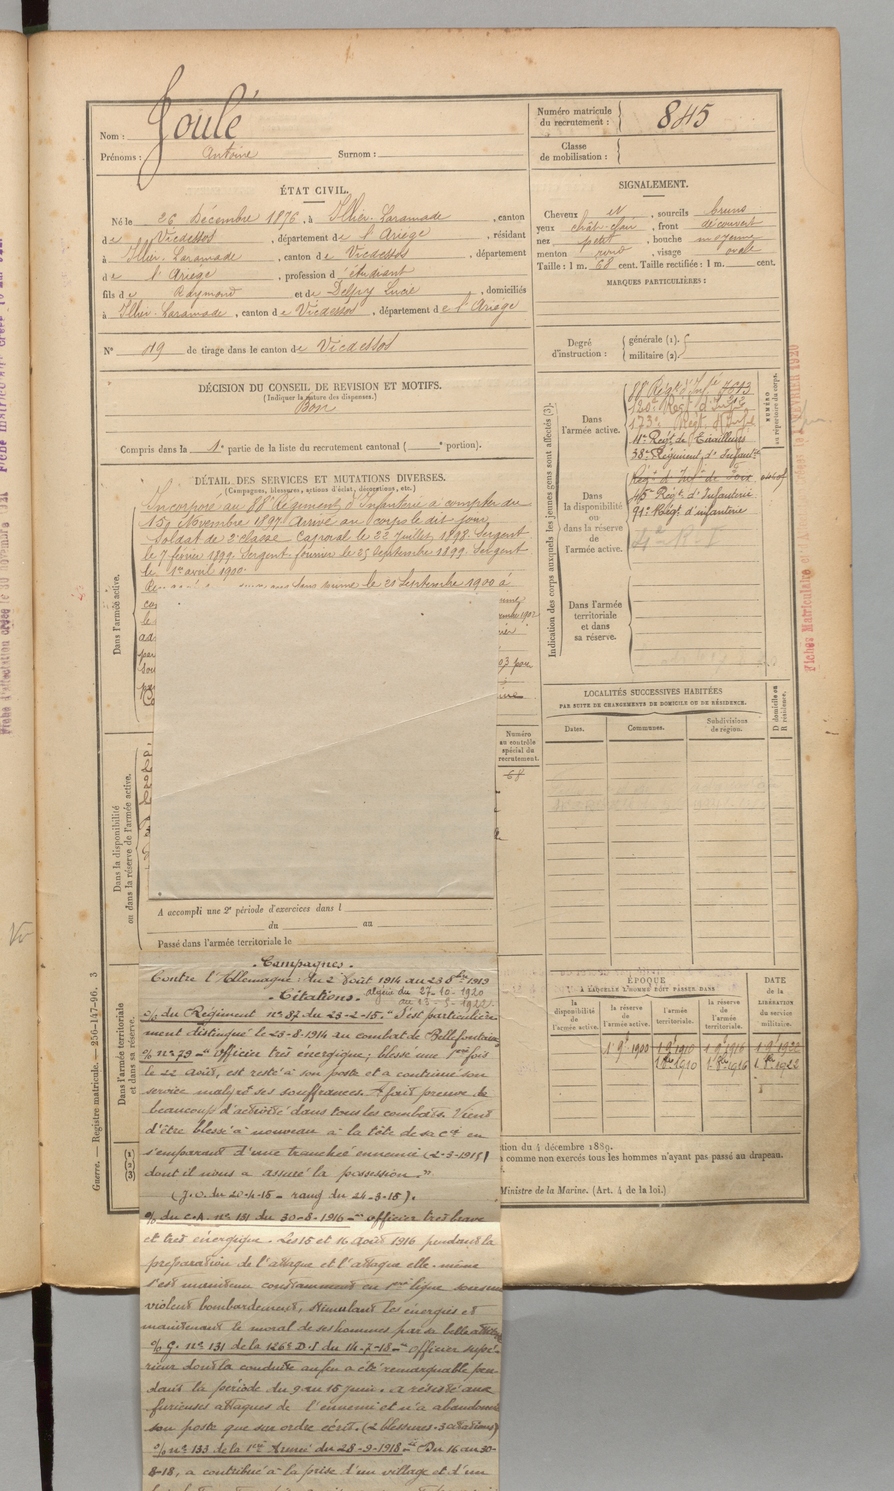 Nom : Goulé
Prénoms : Antoine Surnom :
Numéro matricule du recrutement : 845
Classe de mobilisation :
ÉTAT CIVIL.
Né le 26 Décembre 1876, à Illier-Laramade, canton
de Vicdessos, département de l'Ariège, résidant
à Illier-Laramade, canton de Vicdessos, département
de l'Ariège, profession d'étudiant
fils de Raymond et de Delpy Lucie, domiciliés
à Illier-Laramade, canton de Vicdessos, département de l'Ariège
N° 49 de tirage dans le canton de Vicdessos
SIGNALEMENT.
Cheveux et, sourcils bruns
yeux chât-clair, front découvert
nez petit, bouche moyenne
menton rond, visage ovale
Taille : 1 m. 68 cent. Taille rectifiée : 1 m. cent.
MARQUES PARTICULIÈRES :
Degré d'instruction : générale (1). militaire (2).
DÉCISION DU CONSEIL DE REVISION ET MOTIFS.
(Indiquer la nature des dispenses.)
Bon
Compris dans la 1e partie de la liste du recrutement cantonal ( e portion).
DÉTAIL DES SERVICES ET MUTATIONS DIVERSES.
(Campagnes, blessures, actions d'éclat, décorations, etc.)
Dans l'armée active.
Incorporé au 88e Régiment d'Infanterie à compter du
15 Novembre 1897. Arrivé au corps le dit jour,
Soldat de 2e classe. Caporal le 22 Juillet 1898. Sergent
le 7 février 1899. Sergent-fourrier le 25 Septembre 1899. Sergent
le 1er avril 1900.
le 20 Septembre 1900 à
Indication des corps auxquels les jeunes gens sont affectés (3).
NUMÉRO au répertoire du corps.
Dans l'armée active.
88e Régt d'Infie 7613
120e Regt d'Infie
173e Regt d'Infie
4e Régt de Tirailleurs
38e Régiment d'Infanterie
Dans la disponibilité ou dans la réserve de l'armée active.
Régt d'Infie de Foix
45e Régt d'Infanterie
91e Régt d'infanterie
Dans l'armée territoriale et dans sa réserve.
LOCALITÉS SUCCESSIVES HABITÉES
PAR SUITE DE CHANGEMENTS DE DOMICILE OU DE RÉSIDENCE.
Dates. Communes. Subdivisions de région. D domicile ou R résidence.
Numéro au contrôle spécial du recrutement.
64
Dans la disponibilité ou dans la réserve de l'armée active.
A accompli une 2e période d'exercices dans l
du au
Passé dans l'armée territoriale le
Dans l'armée territoriale et dans sa réserve.
Campagnes.
Contre l'Allemagne : du 2 Août 1914 au 23 8bre 1919
Citations. algérie du 27-10-1920
au 13-5-1922
o/o du Régiment n° 87 du 23-2-15. "S'est particulière
ment distingué le 23-8-1914 au combat de Bellefontaine
o/o n° 79 - "Officier très énergique ; blessé une 1ère fois
le 22 Août, est resté à son poste et a continué son
service malgré ses souffrances. A fait preuve de
beaucoup d'activité dans tous les combats. Vient
d'être blessé à nouveau à la tête de sa Cie en
s'emparant d'une tranchée ennemie (2-3-1915)
dont il nous a assuré la possession."
(J.O. du 20-4-15 - rang du 24-3-15).
o/o du C.A. n° 131 du 30-8-1916 - "officier très brave
et très énergique. Les 15 et 16 Août 1916 pendant la
préparation de l'attaque et l'attaque elle-même
s'est maintenu constamment en 1ère ligne sous un
violent bombardement, stimulant les énergies et
maintenant le moral de ses hommes par sa belle attitude
o/o G. n° 131 de la 126e D.I. du 14-7-18 - "Officier supé-
rieur dont la conduite au feu a été remarquable pen
dant la période du 9 au 15 Juin. a résisté aux
furieuses attaques de l'ennemi et n'a abandonné
son poste que sur ordre écrit. (2 blessures. 3 citations)
o/o n° 133 de la 1ère Armée du 28-9-1918 - "Du 16 au 30-
8-18, a contribué à la prise d'un village et d'un
ÉPOQUE
À LAQUELLE L'HOMME DOIT PASSER DANS
la disponibilité de l'armée active. la réserve de l'armée active. l'armée territoriale. la réserve de l'armée territoriale.
DATE de la LIBÉRATION du service militaire.
1 9bre 1900 1 9 1910 1 9 1916 1 9 1922
1 8bre 1910 1 8bre 1916 1 8bre 1922
tion du 4 décembre 1889.
comme non exercés tous les hommes n'ayant pas passé au drapeau.
Ministre de la Marine. (Art. 4 de la loi.)
Guerre. — Registre matricule. — 256-147-96. 3